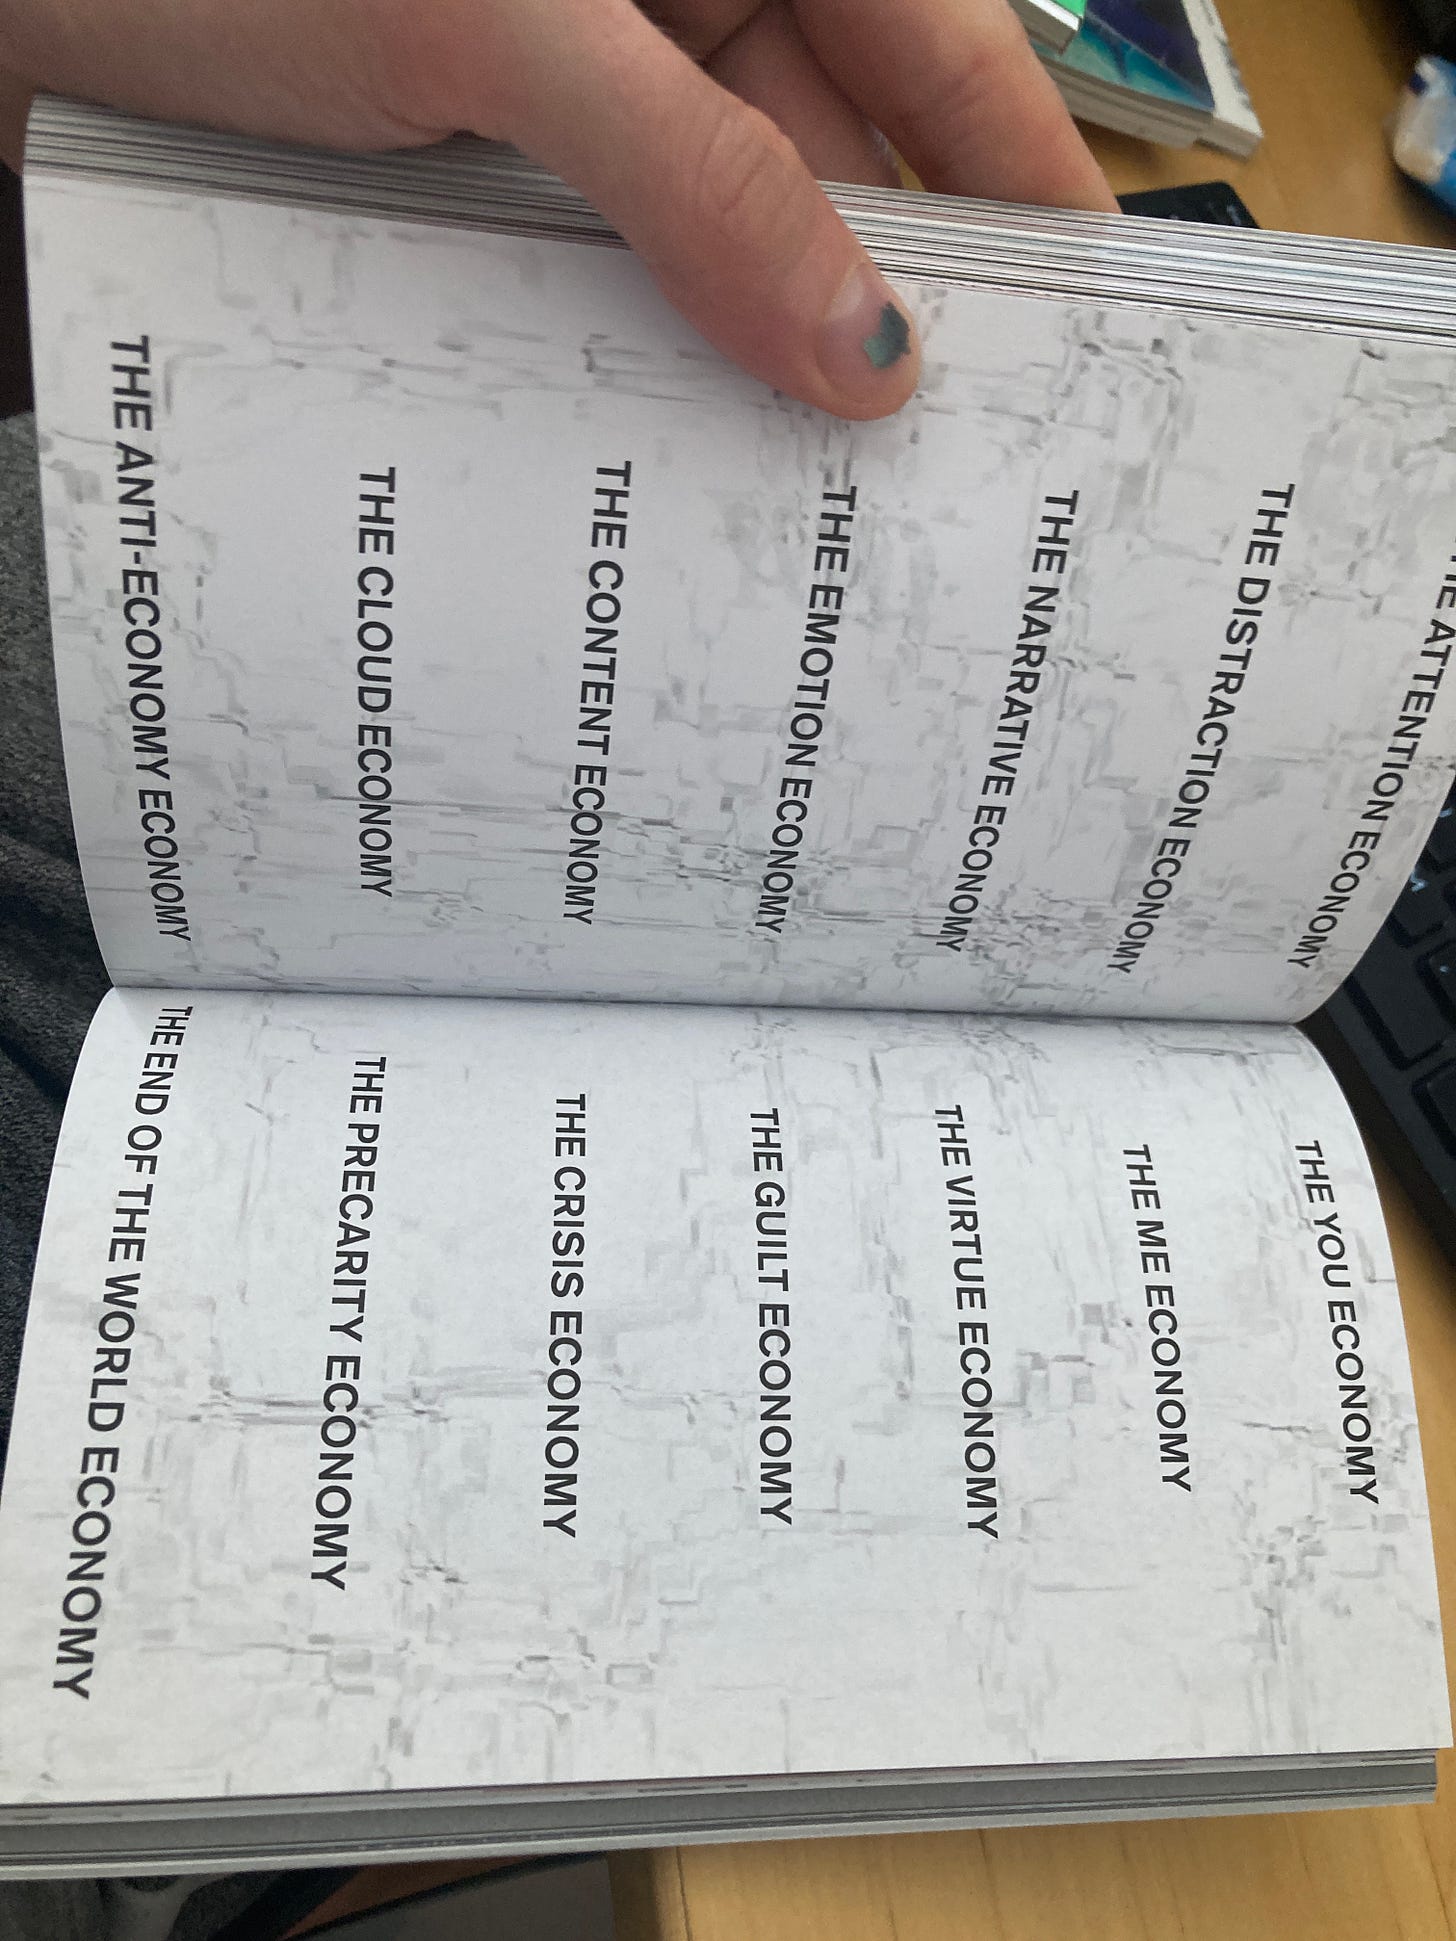 THE ATTENTION ECONOMY
THE DISTRACTION ECONOMY
THE NARRATIVE ECONOMY
THE EMOTION ECONOMY
THE CONTENT ECONOMY
THE CLOUD ECONOMY
THE ANTI-ECONOMY ECONOMY
THE YOU ECONOMY
THE ME ECONOMY
THE VIRTUE ECONOMY
THE GUILT ECONOMY
THE CRISIS ECONOMY
THE PRECARITY ECONOMY
THE END OF THE WORLD ECONOMY